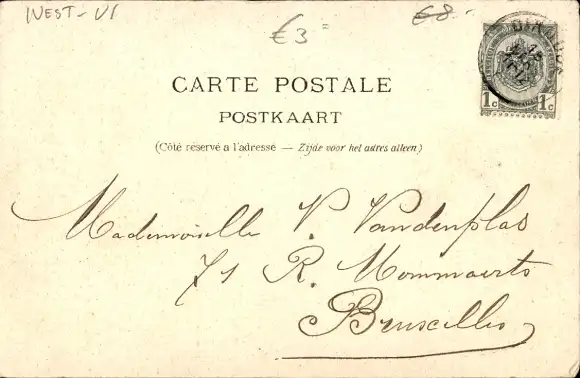 WEST-VL
€3=
€8.-
DIXMUDE
1c 1c
CARTE POSTALE
POSTKAART
(Côté réservé a l'adresse — Zijde voor het adres alleen.)
Mademoiselle V. Vandenplas
71 R. Mommaerts
Bruxelles